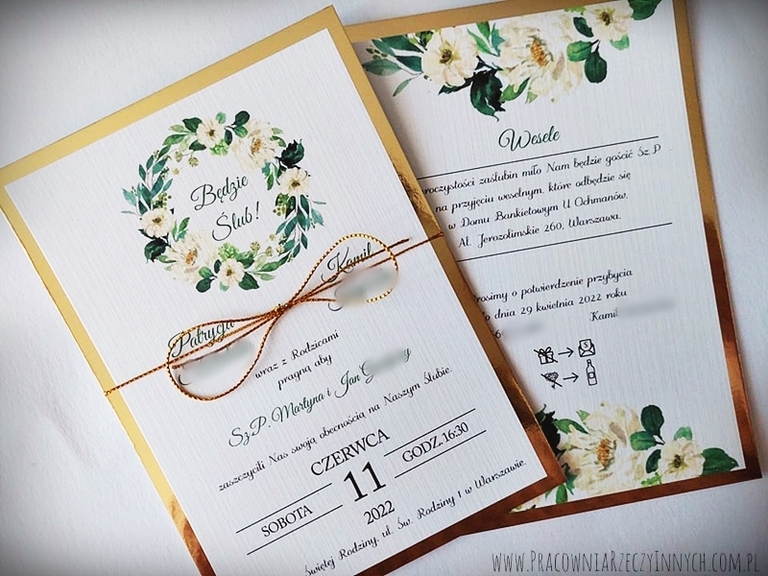 Będzie
Ślub!
Patrycja
Kamil
wraz z Rodzicami
pragną aby
Sz.P. Martyna i Jan
zaszczycili Nas swoją obecnością na Naszym Ślubie.
CZERWCA
SOBOTA 11 GODZ. 16:30
2022
Świętej Rodziny, ul. Św. Rodziny 1 w Warszawie.
Wesele
zaślubin miło Nam będzie gościć Sz.P
na przyjęciu weselnym, które odbędzie się
w Domu Bankietowym U Ochmanów,
Al. Jerozolimskie 260, Warszawa.
o potwierdzenie przybycia
dnia 29 kwietnia 2022 roku
Kamil
www.PracowniaRzeczyInnych.com.pl